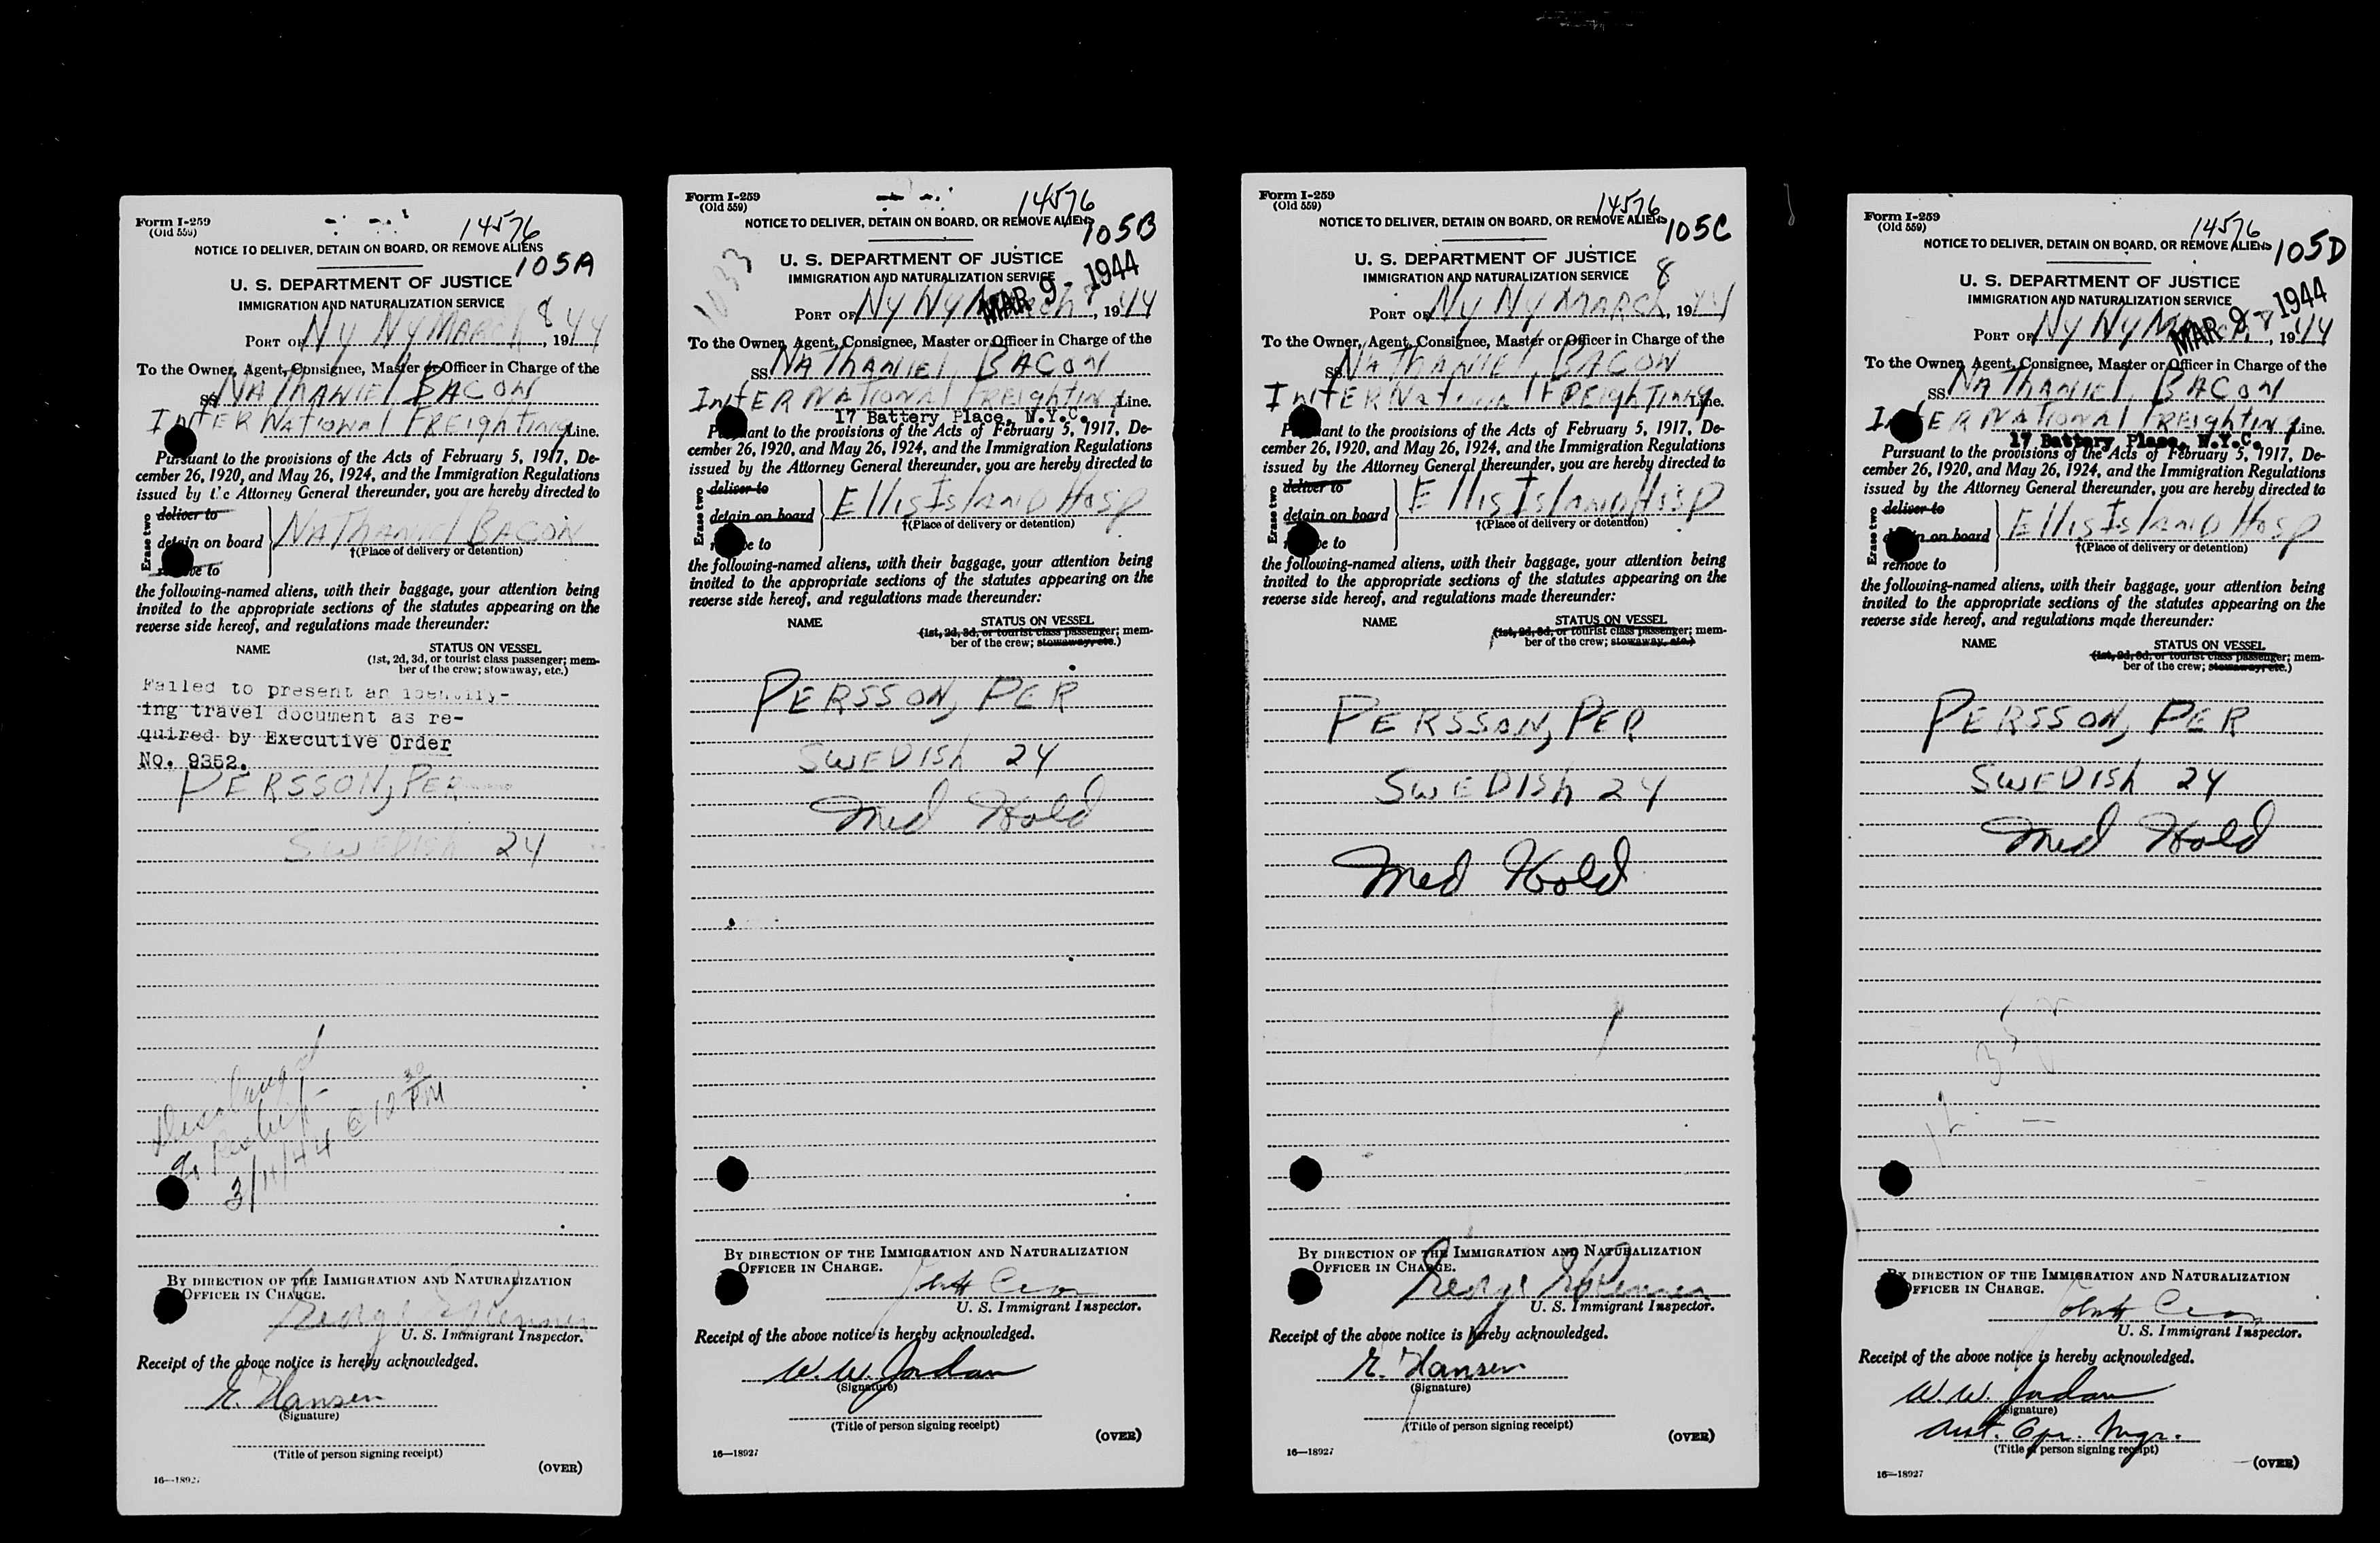 Form I-259
(Old 559)
14576
NOTICE TO DELIVER, DETAIN ON BOARD, OR REMOVE ALIENS
105A
U. S. DEPARTMENT OF JUSTICE
IMMIGRATION AND NATURALIZATION SERVICE
PORT OF NY NY MARCH 8, 1944
To the Owner, Agent, Consignee, Master or Officer in Charge of the
SS NATHANIEL BACON
INTERNATIONAL FREIGHTING Line.
Pursuant to the provisions of the Acts of February 5, 1917, De-
cember 26, 1920, and May 26, 1924, and the Immigration Regulations
issued by the Attorney General thereunder, you are hereby directed to
Erase two
deliver to
detain on board
NATHANIEL BACON
†(Place of delivery or detention)
remove to
the following-named aliens, with their baggage, your attention being
invited to the appropriate sections of the statutes appearing on the
reverse side hereof, and regulations made thereunder:
NAME
STATUS ON VESSEL
(1st, 2d, 3d, or tourist class passenger; mem-
ber of the crew; stowaway, etc.)
Failed to present an identify-
ing travel document as re-
quired by Executive Order
No. 9352.
PERSSON, PER
SWEDISH 24
3/11/44 @ 12 30 PM
BY DIRECTION OF THE IMMIGRATION AND NATURALIZATION
OFFICER IN CHARGE.
U. S. Immigrant Inspector.
Receipt of the above notice is hereby acknowledged.
E. Hansen
(Signature)
(Title of person signing receipt)
(OVER)
16—18927
Form I-259
(Old 559)
14576
NOTICE TO DELIVER, DETAIN ON BOARD, OR REMOVE ALIENS
105B
1033
U. S. DEPARTMENT OF JUSTICE
IMMIGRATION AND NATURALIZATION SERVICE
MAR 9 - 1944
PORT OF NY NY March 8, 1944
To the Owner, Agent, Consignee, Master or Officer in Charge of the
SS NATHANIEL BACON
INTERNATIONAL FREIGHTING Line.
17 Battery Place, N.Y.C.
Pursuant to the provisions of the Acts of February 5, 1917, De-
cember 26, 1920, and May 26, 1924, and the Immigration Regulations
issued by the Attorney General thereunder, you are hereby directed to
Erase two
deliver to
detain on board
Ellis Island Hosp
†(Place of delivery or detention)
remove to
the following-named aliens, with their baggage, your attention being
invited to the appropriate sections of the statutes appearing on the
reverse side hereof, and regulations made thereunder:
NAME
STATUS ON VESSEL
(1st, 2d, 3d, or tourist class passenger; mem-
ber of the crew; stowaway, etc.)
PERSSON, PER
SWEDISh 24
Med Hold
BY DIRECTION OF THE IMMIGRATION AND NATURALIZATION
OFFICER IN CHARGE.
U. S. Immigrant Inspector.
Receipt of the above notice is hereby acknowledged.
W. W. Jordan
(Signature)
(Title of person signing receipt)
(OVER)
16—18927
Form I-259
(Old 559)
14576
NOTICE TO DELIVER, DETAIN ON BOARD, OR REMOVE ALIENS
105C
U. S. DEPARTMENT OF JUSTICE
IMMIGRATION AND NATURALIZATION SERVICE
PORT OF NY NY MARCH 8, 1944
To the Owner, Agent, Consignee, Master or Officer in Charge of the
SS NATHANIEL BACON
INTERNATIONAL FREIGHTING Line.
Pursuant to the provisions of the Acts of February 5, 1917, De-
cember 26, 1920, and May 26, 1924, and the Immigration Regulations
issued by the Attorney General thereunder, you are hereby directed to
Erase two
deliver to
detain on board
Ellis Island Hosp
†(Place of delivery or detention)
remove to
the following-named aliens, with their baggage, your attention being
invited to the appropriate sections of the statutes appearing on the
reverse side hereof, and regulations made thereunder:
NAME
STATUS ON VESSEL
(1st, 2d, 3d, or tourist class passenger; mem-
ber of the crew; stowaway, etc.)
PERSSON, PER
SWEDISh 24
Med Hold
BY DIRECTION OF THE IMMIGRATION AND NATURALIZATION
OFFICER IN CHARGE.
U. S. Immigrant Inspector.
Receipt of the above notice is hereby acknowledged.
E. Hansen
(Signature)
(Title of person signing receipt)
(OVER)
16—18927
Form I-259
(Old 559)
14576
NOTICE TO DELIVER, DETAIN ON BOARD, OR REMOVE ALIENS
105D
U. S. DEPARTMENT OF JUSTICE
IMMIGRATION AND NATURALIZATION SERVICE
MAR 9 - 1944
PORT OF NY NY March 8, 1944
To the Owner, Agent, Consignee, Master or Officer in Charge of the
SS NATHANIEL BACON
INTERNATIONAL FREIGHTING Line.
17 Battery Place, N.Y.C.
Pursuant to the provisions of the Acts of February 5, 1917, De-
cember 26, 1920, and May 26, 1924, and the Immigration Regulations
issued by the Attorney General thereunder, you are hereby directed to
Erase two
deliver to
detain on board
Ellis Island Hosp
†(Place of delivery or detention)
remove to
the following-named aliens, with their baggage, your attention being
invited to the appropriate sections of the statutes appearing on the
reverse side hereof, and regulations made thereunder:
NAME
STATUS ON VESSEL
(1st, 2d, 3d, or tourist class passenger; mem-
ber of the crew; stowaway, etc.)
PERSSON, PER
SWEDISh 24
Med Hold
BY DIRECTION OF THE IMMIGRATION AND NATURALIZATION
OFFICER IN CHARGE.
U. S. Immigrant Inspector.
Receipt of the above notice is hereby acknowledged.
W. W. Jordan
(Signature)
Asst. Opr. Mgr.
(Title of person signing receipt)
(OVER)
16—18927